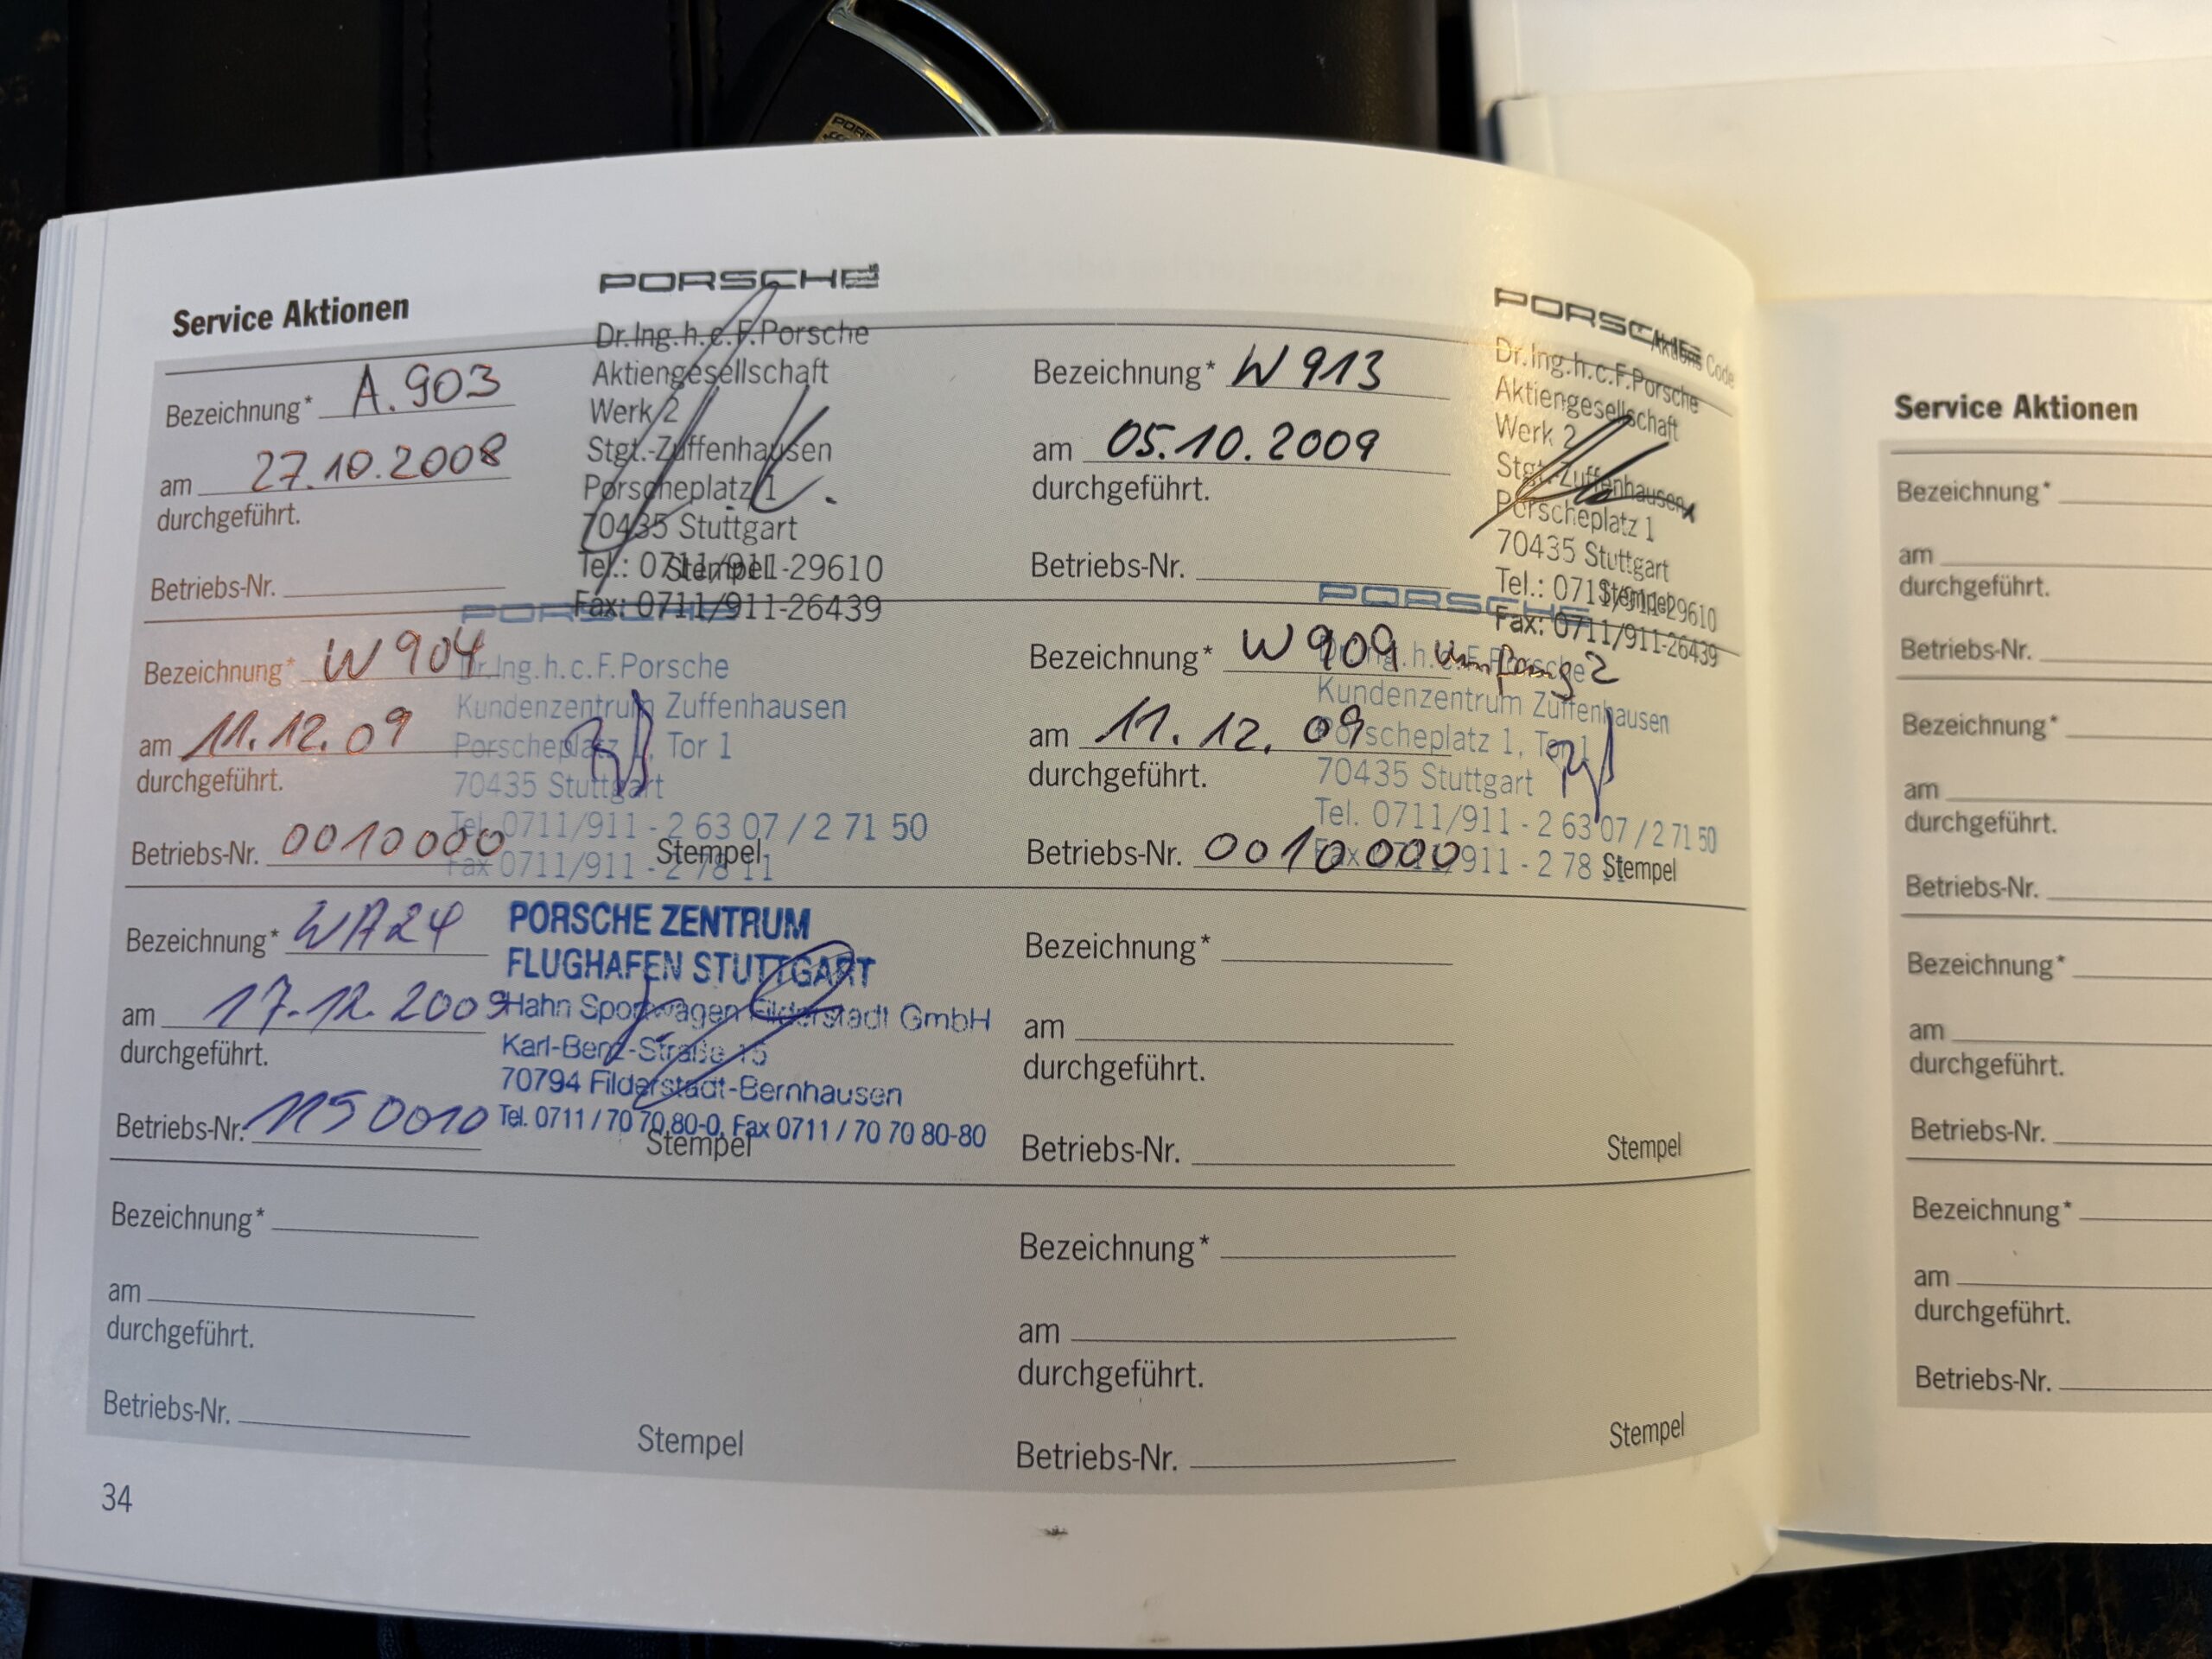 PORSCHE
Service Aktionen
Bezeichnung* A.903
am 27.10.2008
durchgeführt.
Betriebs-Nr.
PORSCHE
Dr.Ing.h.c.F.Porsche
Aktiengesellschaft
Werk 2
Stgt.-Zuffenhausen
Porscheplatz 1
70435 Stuttgart
Tel.: 0711/911-29610
Fax: 0711/911-26439
Stempel
Bezeichnung* W 913
am 05.10.2009
durchgeführt.
Betriebs-Nr.
Aktions Code
PORSCHE
Dr.Ing.h.c.F.Porsche
Aktiengesellschaft
Werk 2
Stgt.-Zuffenhausen
Porscheplatz 1
70435 Stuttgart
Tel.: 0711/911-29610
Fax: 0711/911-26439
Stempel
Bezeichnung* W 904
am 11.12.09
durchgeführt.
Betriebs-Nr. 0010000
PORSCHE
Dr.Ing.h.c.F.Porsche
Kundenzentrum Zuffenhausen
Porscheplatz 1, Tor 1
70435 Stuttgart
Tel. 0711/911 - 2 63 07 / 2 71 50
Fax 0711/911 - 2 78 11
Stempel
Bezeichnung* W 909 Umfang 2
am 11.12.09
durchgeführt.
Betriebs-Nr. 0010000
PORSCHE
Dr.Ing.h.c.F.Porsche
Kundenzentrum Zuffenhausen
Porscheplatz 1, Tor 1
70435 Stuttgart
Tel. 0711/911 - 2 63 07 / 2 71 50
Fax 0711/911 - 2 78
Stempel
Bezeichnung* WA24
am 17.12.2009
durchgeführt.
Betriebs-Nr. 1150010
PORSCHE ZENTRUM
FLUGHAFEN STUTTGART
Hahn Sportwagen Filderstadt GmbH
Karl-Benz-Straße 15
70794 Filderstadt-Bernhausen
Tel. 0711 / 70 70 80-0, Fax 0711 / 70 70 80-80
Stempel
Bezeichnung*
am
durchgeführt.
Betriebs-Nr.
Stempel
Bezeichnung*
am
durchgeführt.
Betriebs-Nr.
Stempel
Bezeichnung*
am
durchgeführt.
Betriebs-Nr.
Stempel
34
Service Aktionen
Bezeichnung*
am
durchgeführt.
Betriebs-Nr.
Bezeichnung*
am
durchgeführt.
Betriebs-Nr.
Bezeichnung*
am
durchgeführt.
Betriebs-Nr.
Bezeichnung*
am
durchgeführt.
Betriebs-Nr.